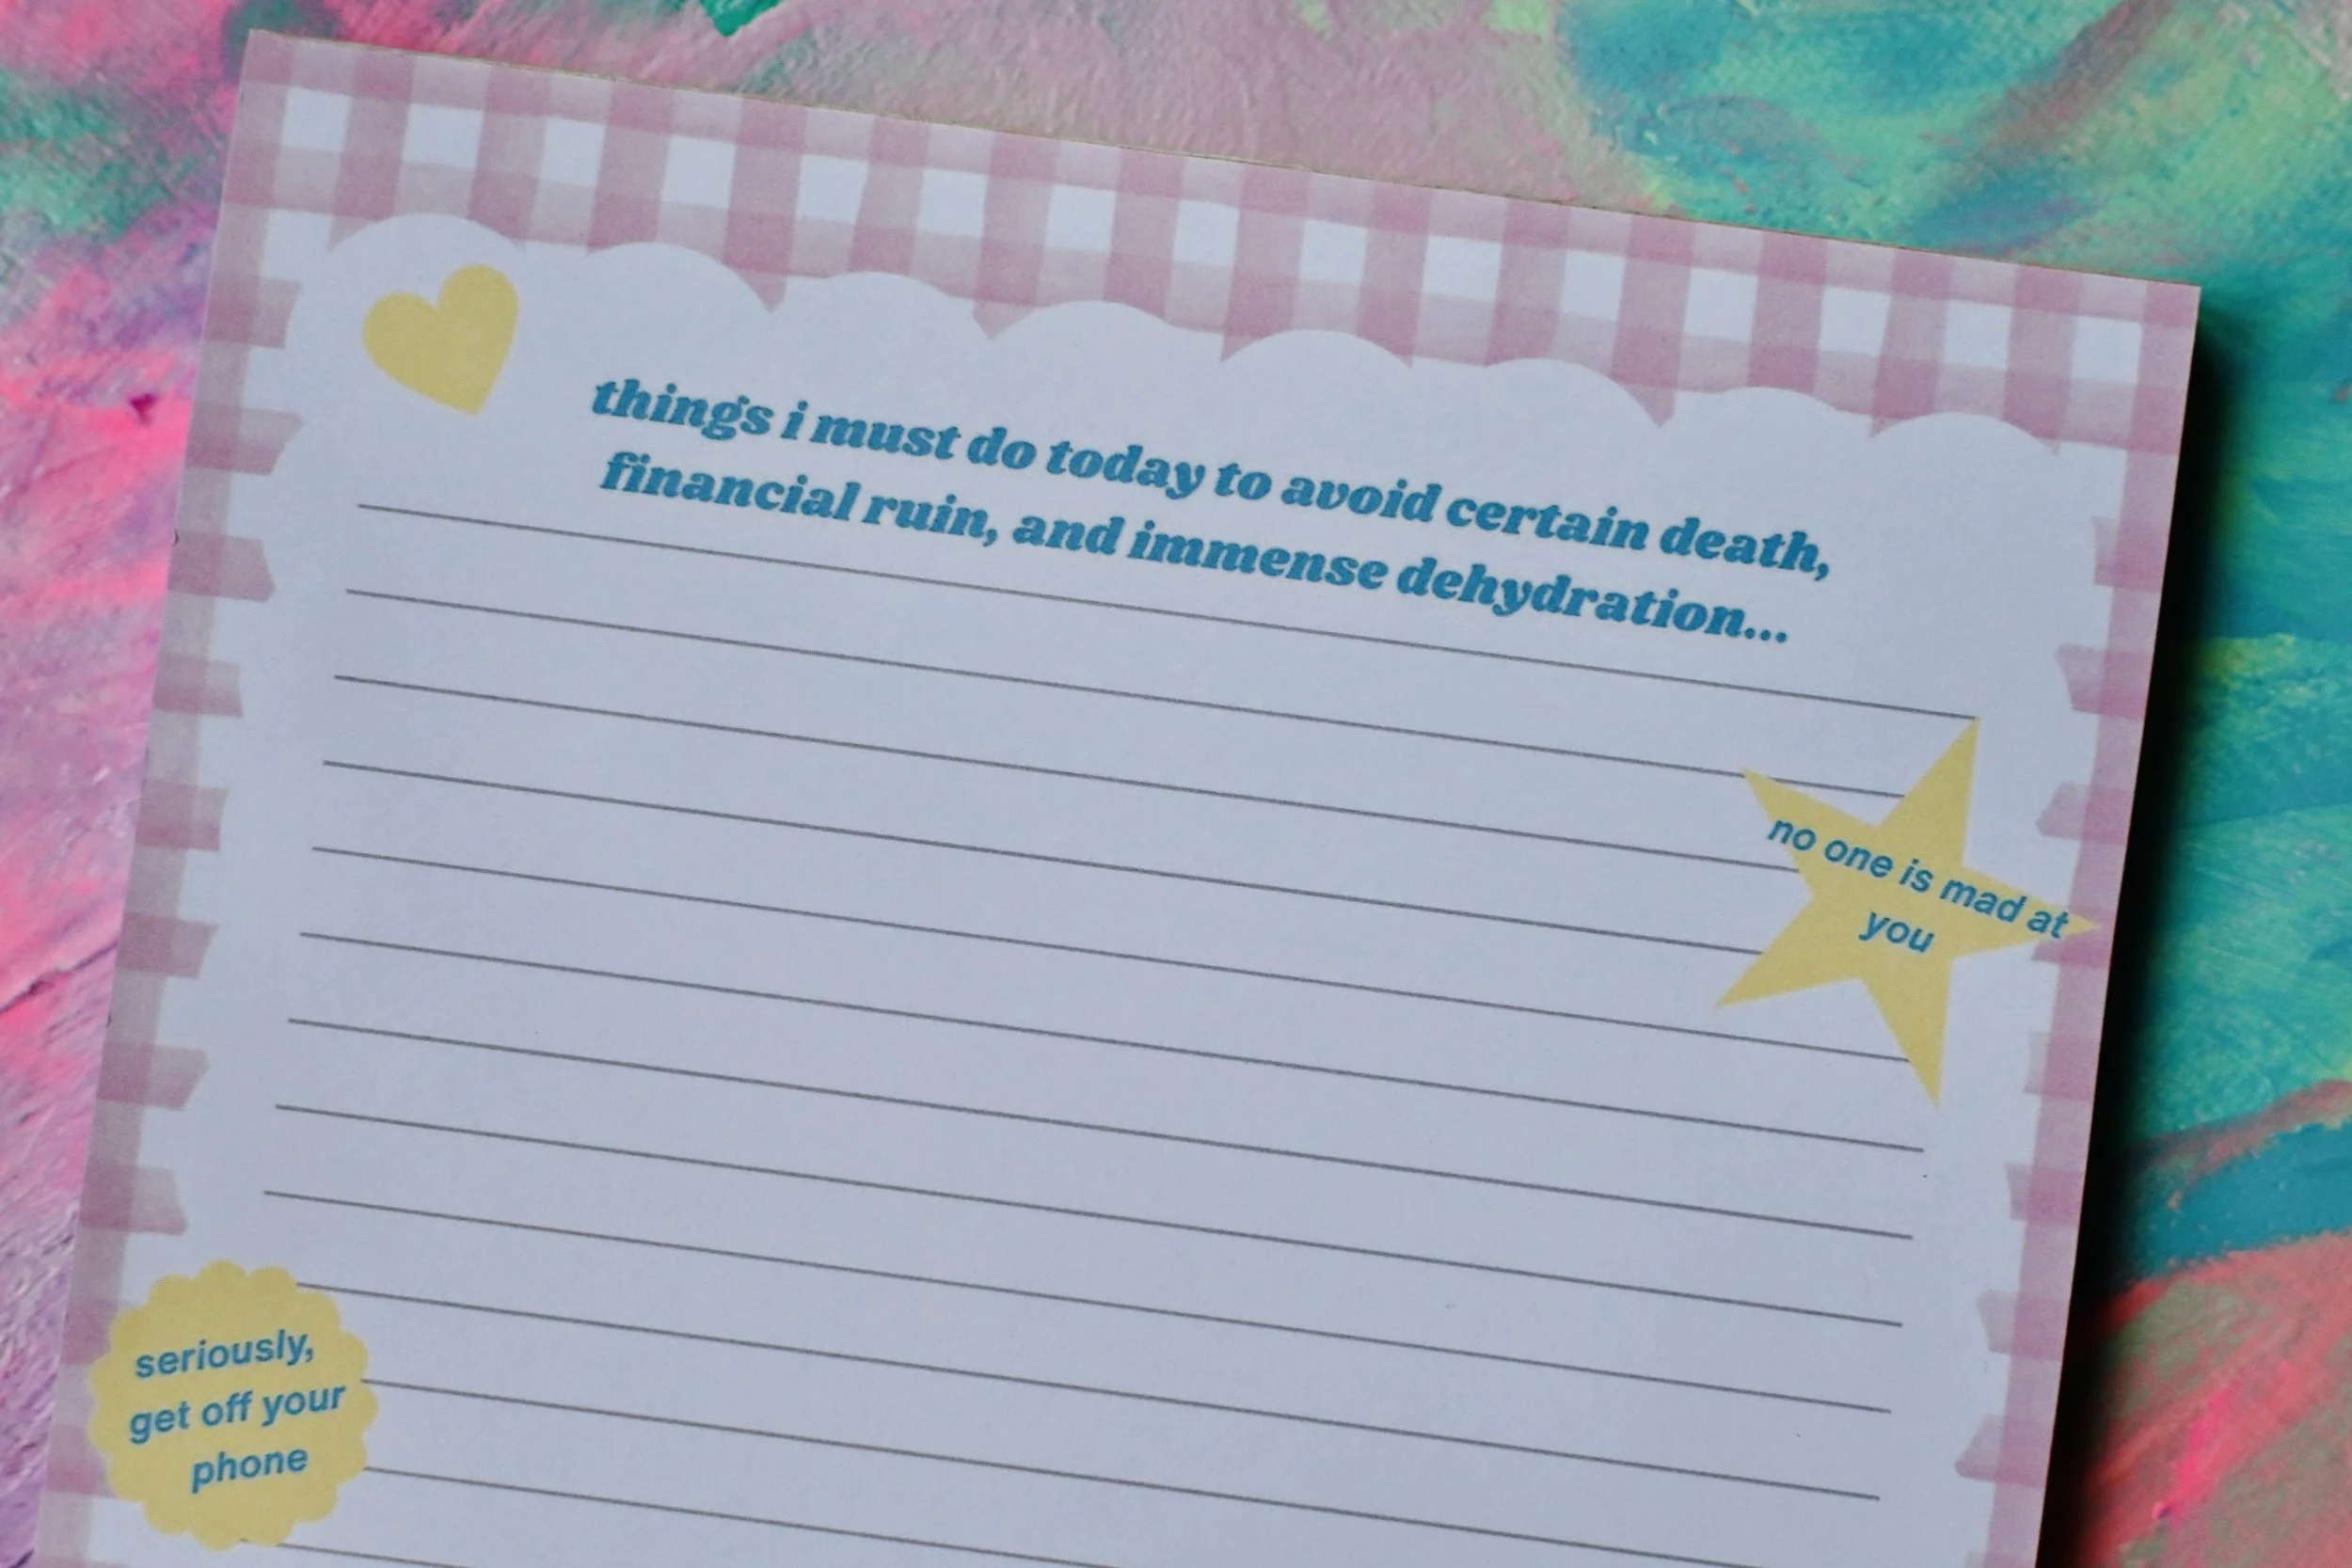 things i must do today to avoid certain death,
financial ruin, and immense dehydration...
no one is mad at
you
seriously,
get off your
phone